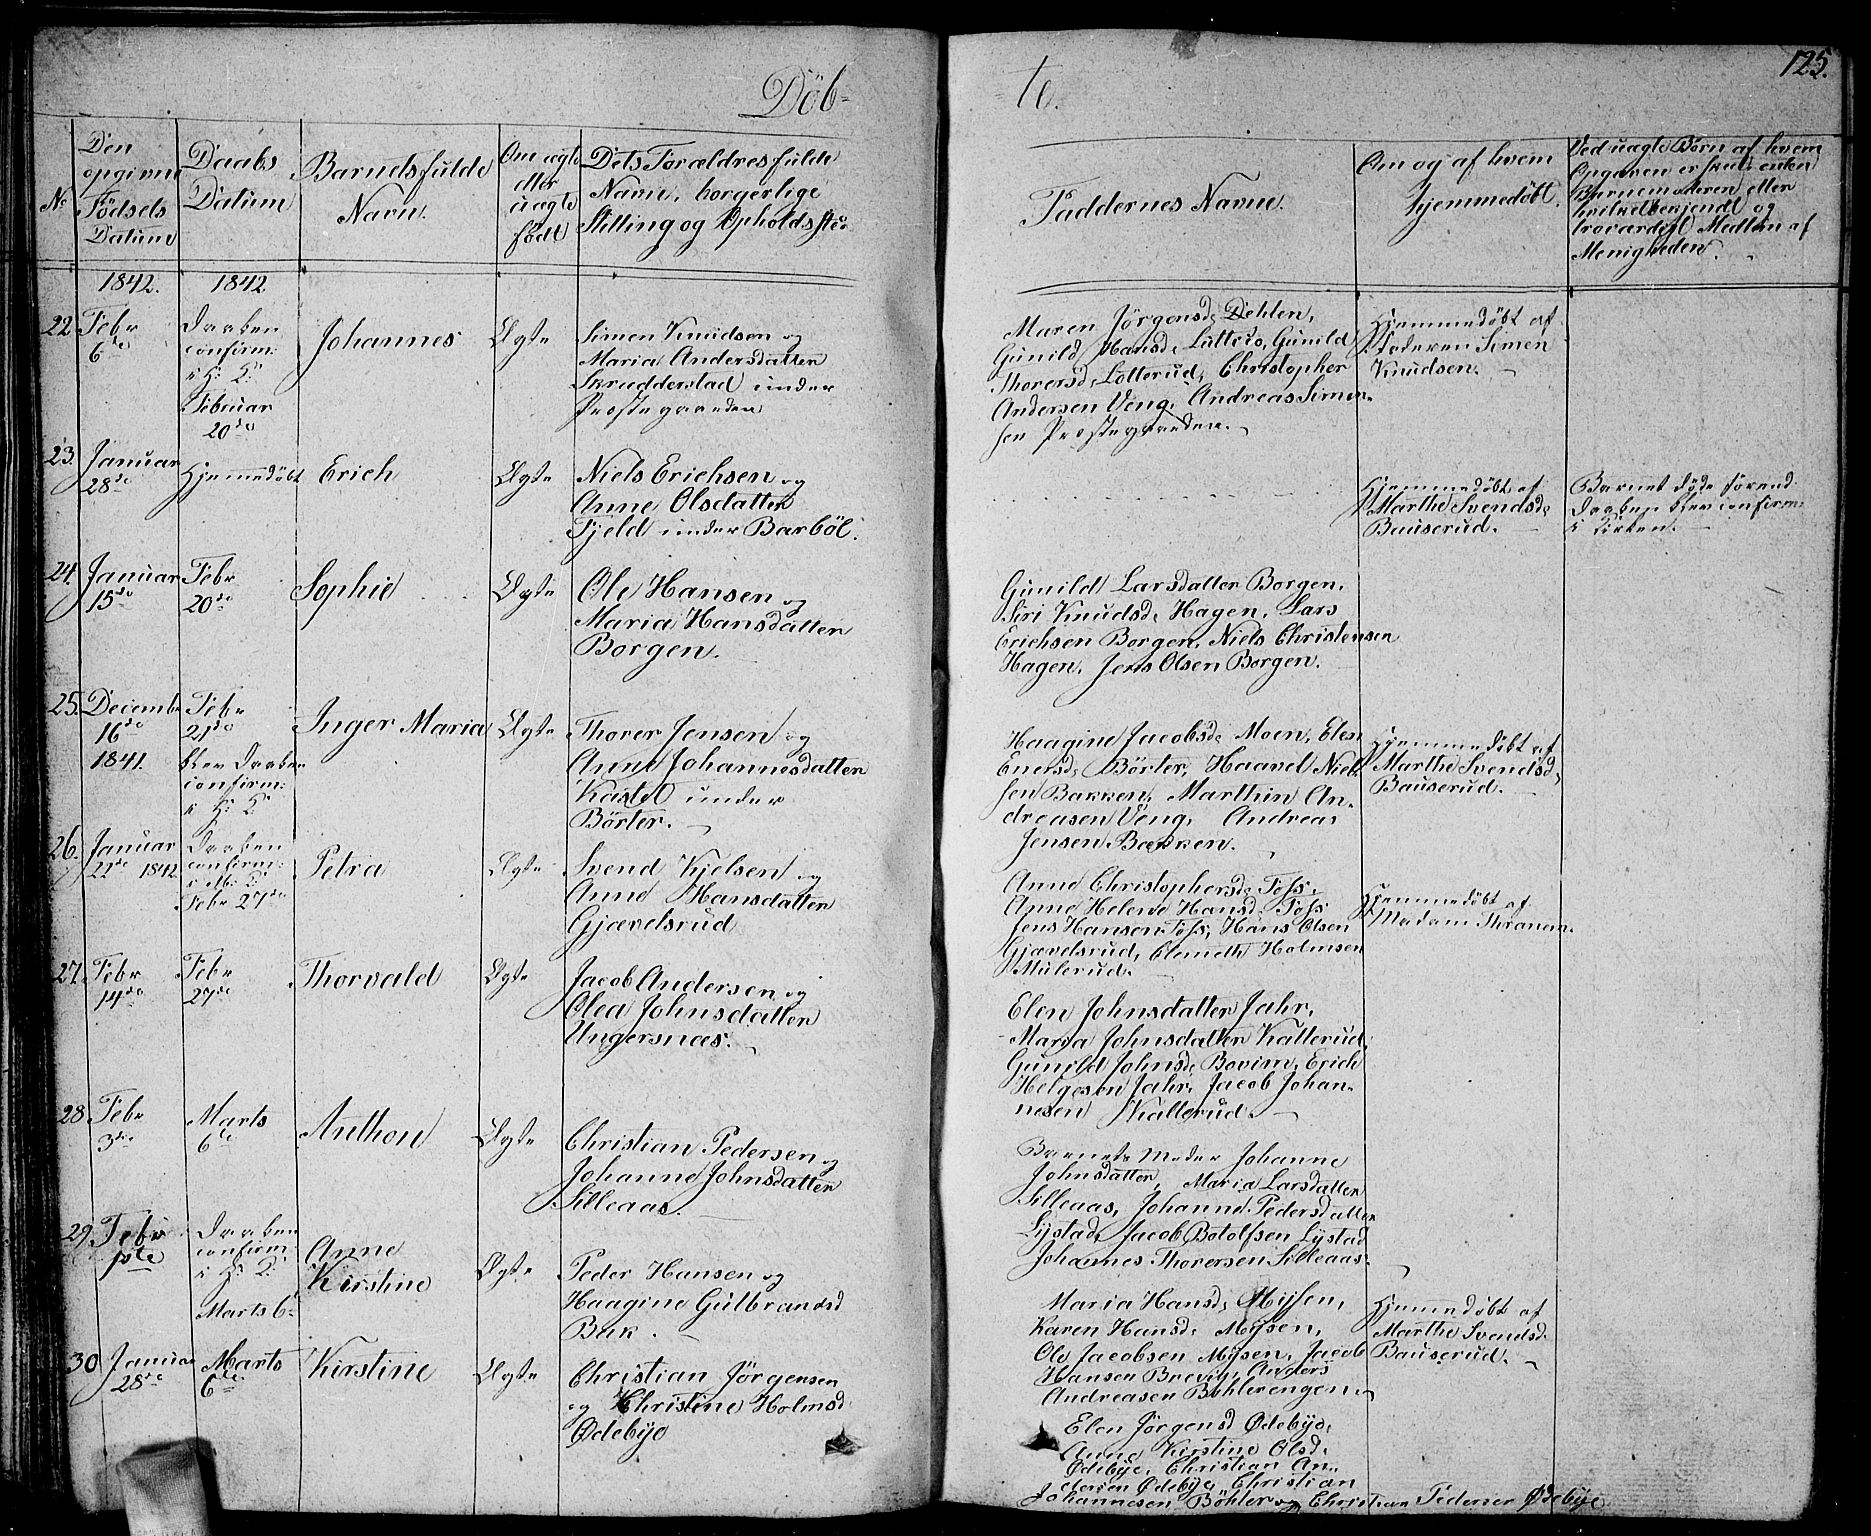 Döb-
te.
125.
No
Den
opgivne
Fødsels
Datum
Daabs
Datum
Barnets fulde
Navn.
Om ægte
eller
uægte
født
Dets Forældres fulde
Navn, borgerlige
Stilling og Opholdsste-
Faddernes Navne.
Om og af hvem
hjemmedöbt.
Ved uægte Børn af hvem
Opgaven er skeet enten
Barnemoderen eller
hvilket bekjendt og
troværdigt Medlem af
Menigheden.
1842.
1842
22.
Febr
6te
Daaben
confirm:
i H: K:
Februar
20de
Johannes
Ægte
Simen Knudsen og
Maria Andersdatter
Skrædderstad under
Prestegaarden
Maren Jörgensd. Dehlen,
Gunild Hansd. Sletteró, Gunild
Thorersd. Lotterud, Christopher
Andersen Veng, Andreas Simen-
sen Prestegaarden.
Hjemmedöbt af
Faderen Simen
Knudsen.
23.
Januar
28de
Hjemmedöbt
Erich
Ægte
Niels Erichsen og
Anne Olsdatter
Fjeld under Barböl.
Hjemmedöbt af
Marthe Svendsd.
Bauserud.
Barnet døde forend
Daaben blev confirm:
i Kirken.
24.
Januar
15de
Febr
20de
Sophie
Ægte
Ole Hansen og
Maria Hansdatter
Borgen.
Gunild Larsdatter Borgen,
Siri Knudsd. Hagen, Lars
Erichsen Borgen, Niels Christensen
Hagen, Jens Olsen Borgen.
25.
Decembr
16de
1841.
Febr
21de
blev Daaben
confirm:
i H: K:
Inger Maria
Ægte
Thorer Jensen og
Anne Johannesdatter
Kastet under
Börter.
Haagine Jacobsd. Moen, Elen
Enersd. Börter, Haavel Niel-
sen Bakken, Marthin An-
dreasen Veng, Andreas
Jensen Bakken.
Hjemmedöbt af
Marthe Svendsd.
Bauserud.
26.
Januar
22de 1842
Daaben
confirm:
i Ms: K:
Febr 27de
Petra
Ægte
Svend Kjelsen og
Anne Hansdatter
Gjævelsrud
Anne Christophersd. Foss,
Anne Helene Hansd. Foss
Jens Hansen Foss, Hans Olsen
Gjævelsrud, Clemeth Holmsen
Mulerud.
Hjemmedöbt af
Madam Thranem.
27.
Febr
14de
Febr
27de
Thorvald
Ægte
Jacob Andersen og
Olea Johnsdatter
Ungersnæs.
Elen Johnsdatter Jahr,
Maria Johnsdatter Kallerud,
Gunild Johnsd. Bovim, Erich
Helgesen Jahr, Jacob Johan-
nesen Kallerud.
28
Febr
3de
Marts
6te
Anthon
Ægte
Christian Pedersen og
Johanne Johnsdatter
Silleaas.
Barnets Moder Johanne
Johnsdatter, Maria Larsdatter
Silleaas, Johanne Pedersdatter
Lystad, Jacob Botolfsen Lystad
Johannes Thorersen Silleaas.
29.
Febr
1ste
Daaben
confirm
i H: K:
Marts 6te
Anne
Kirstine
Ægte
Peder Hansen og
Haagine Gulbrandsd
Bak.
Maria Hansd. Mysen,
Karen Hansd. Mysen,
Ole Jacobsen Mysen, Jacob
Hansen Brevig, Anders
Andreasen Böhlerengen.
Hjemmedöbt af
Marthe Svendsd.
Bauserud.
30
Januar
28de
Marts
6te
Kirstine
Ægte
Christian Jörgensen
og Christine Holmsd
Ødebye
Elen Jörgensd Ødebye,
Anne Kirstine Olsd.
Ødebye, Christian An-
dersen Ødebye, Christian
Johannesen Böhler og Christian Pederser Ødebye